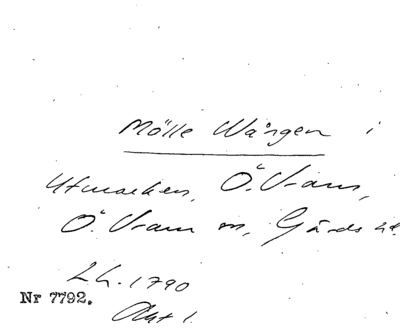 Mölle Wången i
Utmarken, Ö. Vram,
Ö. Vram sn, Gärds hd.
LK. 1790
Nr 7792.
Akt 1.